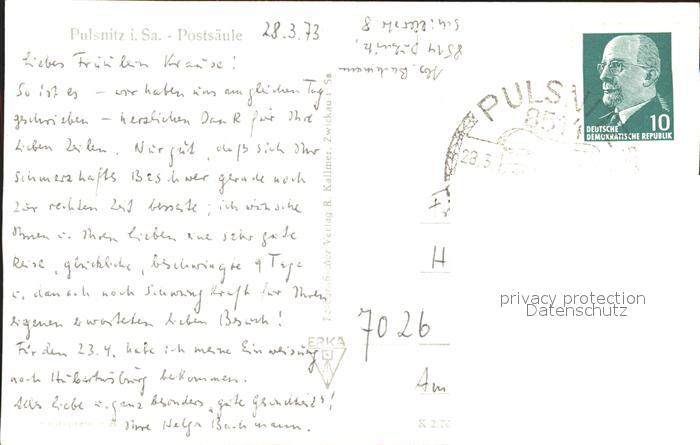 Pulsnitz i. Sa. - Postsäule
28.3.73
Liebes Fräulein Krause!
So ist es – wir haben uns am gleichen Tag
geschrieben – herzlichen Dank für Ihre
lieben Zeilen. Nur gut, daß sich Ihr
schmerzhafte Beschwer gerade noch
zur rechten Zeit besserte; ich wünsche
Ihnen u. Ihren Lieben eine sehr gute
Reise, glückliche, beschwingte 9 Tage
u. danach noch Schwung Kraft für Ihren
eigenen erwarteten lieben Besuch!
Für den 23.4. habe ich meine Einweisung
nach Hubertusburg bekommen.
Alles Liebe u. ganz besonders „gute Gesundheit"!
Ihre Helga Bachmann.
Abs. Bachmann
8514 Pulsnitz,
Verlag R. Kallmer, Zwickau i. Sa
ERKA
PULSNITZ
851
28.3
10
DEUTSCHE
DEMOKRATISCHE REPUBLIK
H
7026
Am
privacy protection
Datenschutz